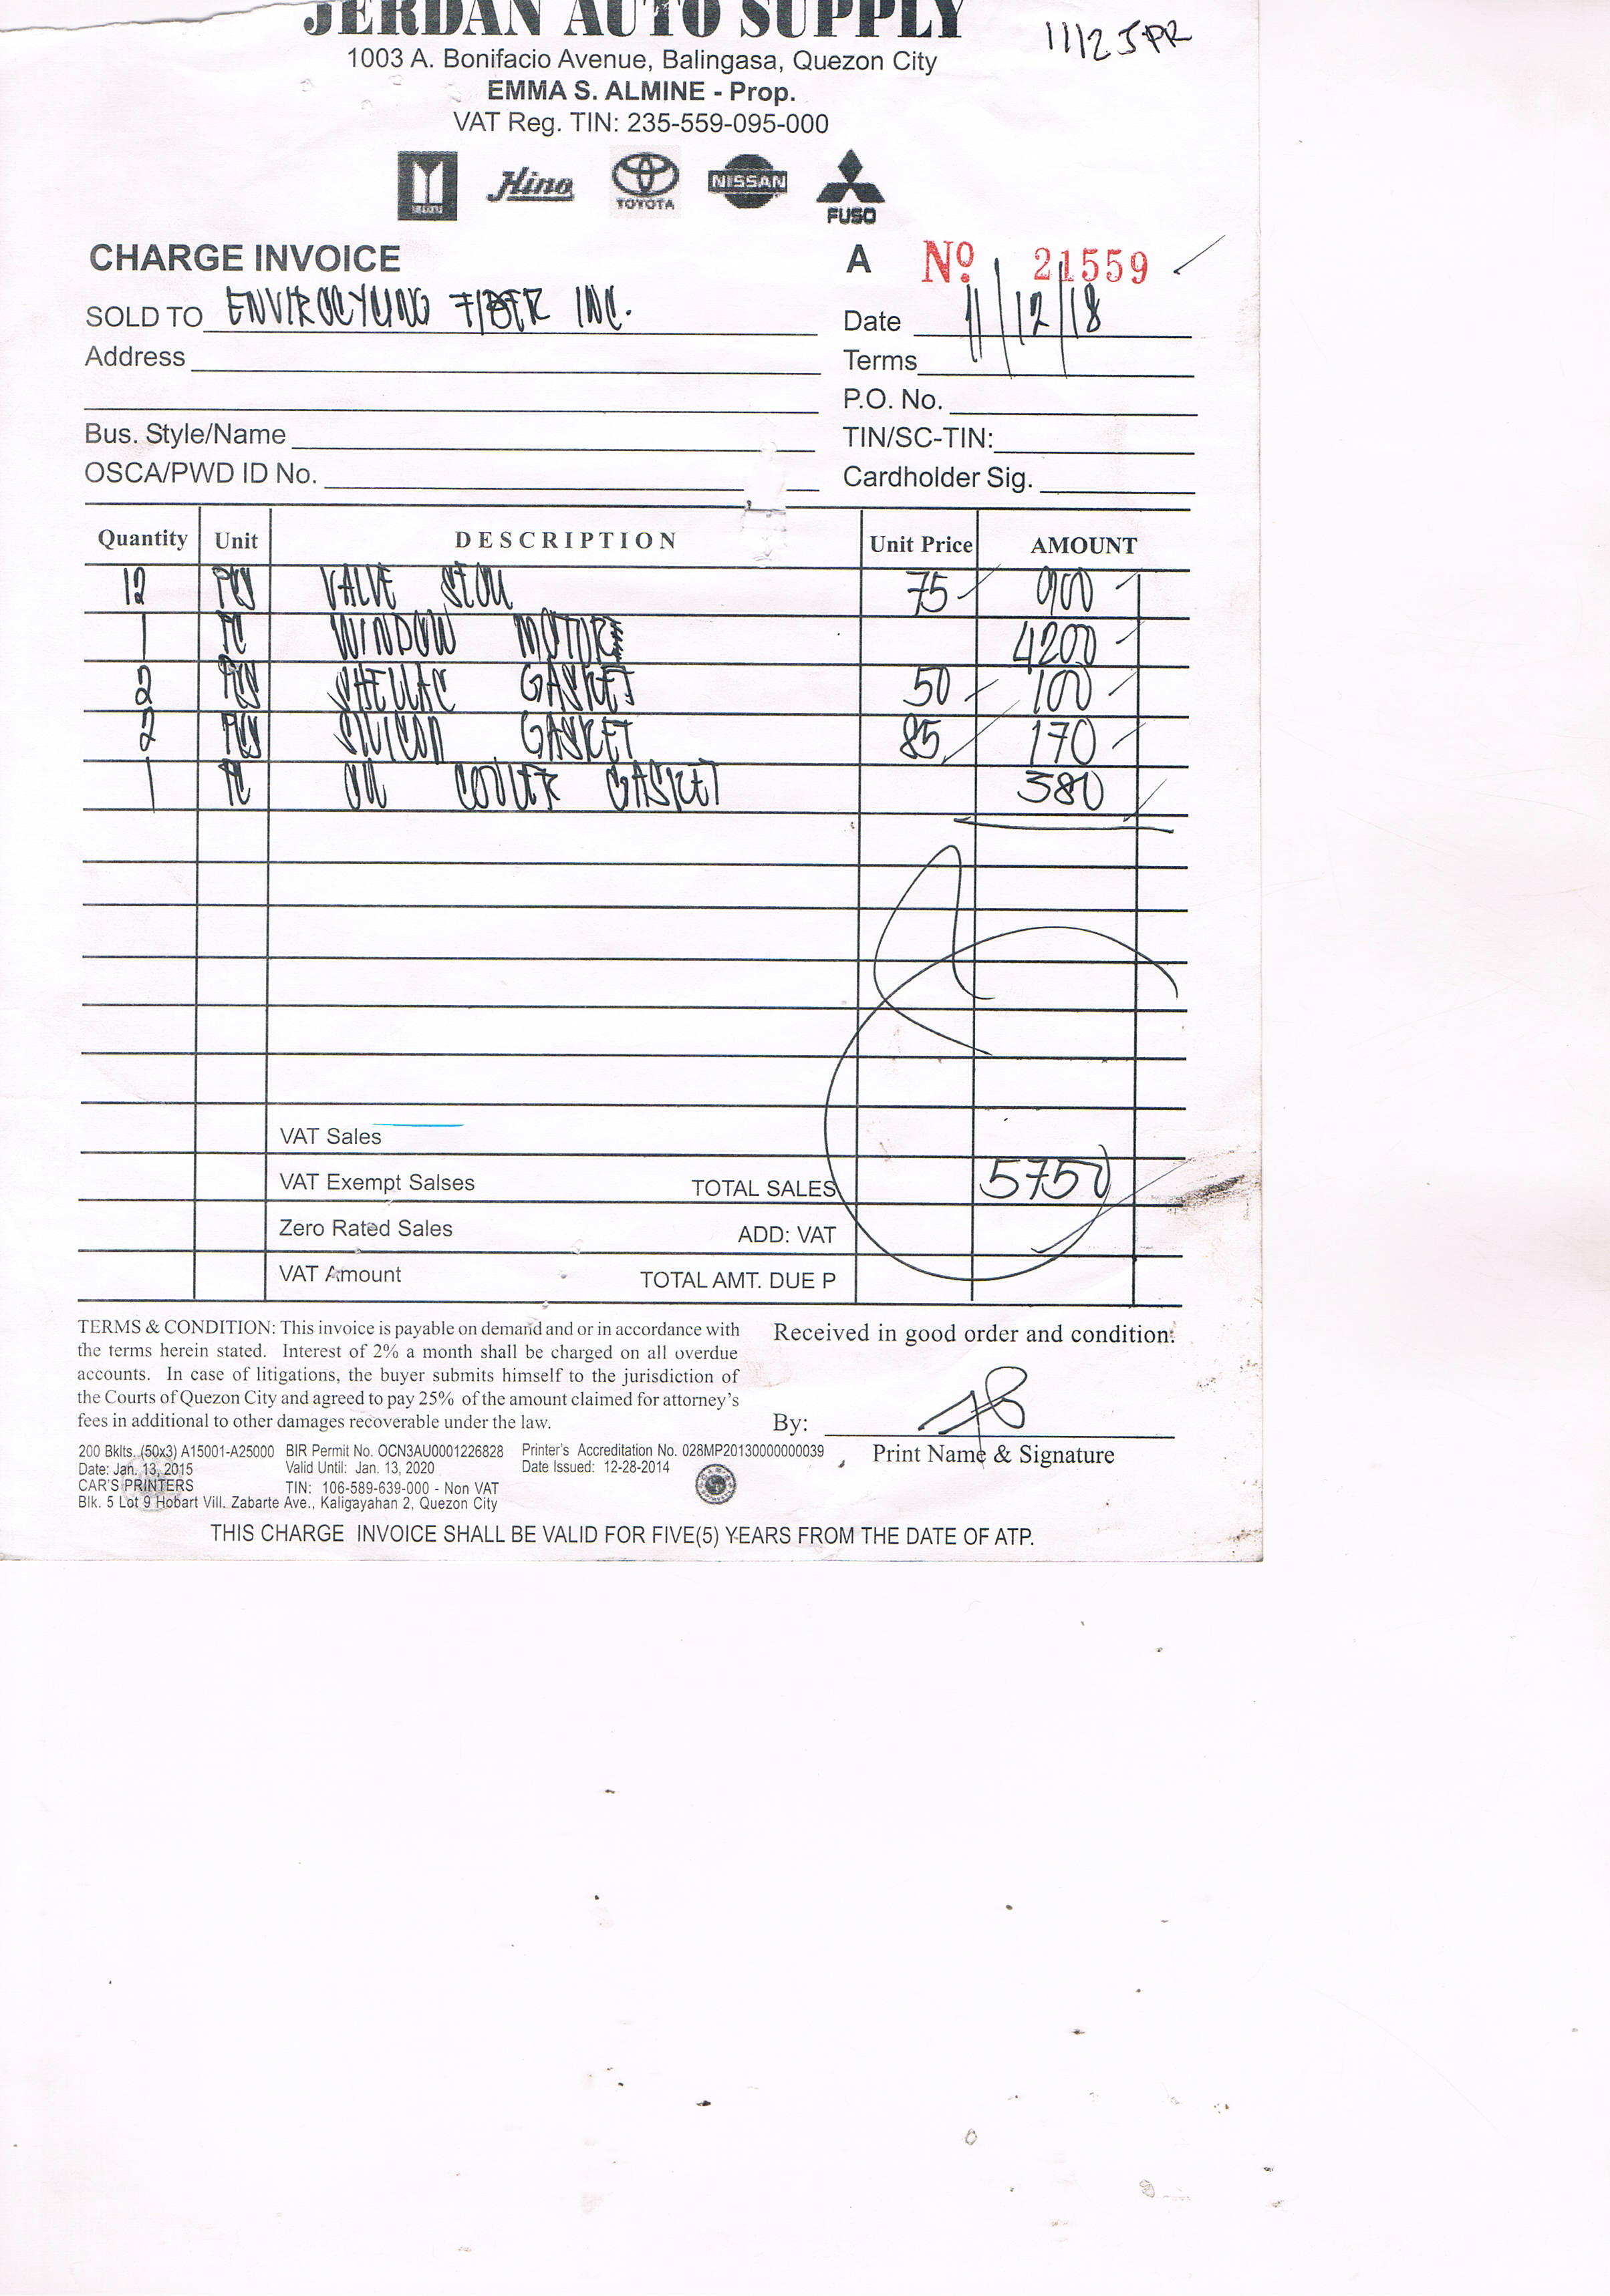 JERDAN AUTO SUPPLY
11125 PR
1003 A. Bonifacio Avenue, Balingasa, Quezon City
EMMA S. ALMINE - Prop.
VAT Reg. TIN: 235-559-095-000
ISUZU Hino TOYOTA NISSAN FUSO
CHARGE INVOICE A Nº 21559
SOLD TO ENVIROCYCLING FIBER INC. Date 11/12/18
Address Terms
P.O. No.
Bus. Style/Name TIN/SC-TIN:
OSCA/PWD ID No. Cardholder Sig.
Quantity Unit DESCRIPTION Unit Price AMOUNT
12 PCS VALVE SEAL 75 900
1 PC WINDOW MOTOR 4200
2 PCS SHELLAC GASKET 50 100
2 PCS SILICON GASKET 85 170
1 PC OIL COOLER GASKET 380
VAT Sales
VAT Exempt Salses TOTAL SALES 5750
Zero Rated Sales ADD: VAT
VAT Amount TOTAL AMT. DUE P
TERMS & CONDITION: This invoice is payable on demand and or in accordance with
the terms herein stated. Interest of 2% a month shall be charged on all overdue
accounts. In case of litigations, the buyer submits himself to the jurisdiction of
the Courts of Quezon City and agreed to pay 25% of the amount claimed for attorney's
fees in additional to other damages recoverable under the law.
Received in good order and condition.
By:
Print Name & Signature
200 Bklts. (50x3) A15001-A25000 BIR Permit No. OCN3AU0001226828 Printer's Accreditation No. 028MP20130000000039
Date: Jan. 13, 2015 Valid Until: Jan. 13, 2020 Date Issued: 12-28-2014
CAR'S PRINTERS TIN: 106-589-639-000 - Non VAT
Blk. 5 Lot 9 Hobart Vill. Zabarte Ave., Kaligayahan 2, Quezon City
THIS CHARGE INVOICE SHALL BE VALID FOR FIVE(5) YEARS FROM THE DATE OF ATP.